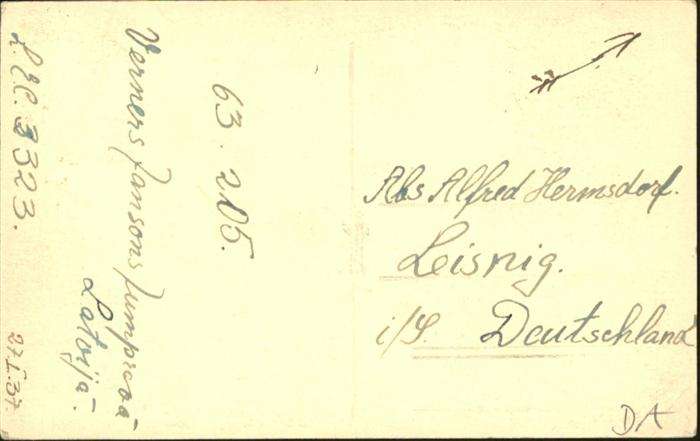 L.CC. 3323.
Verners Jansons Jumpravā
Latvijā.
63. 205.
27.I.37.
Abs Alfred Hermsdorf.
Leisnig.
i/S. Deutschland
DA